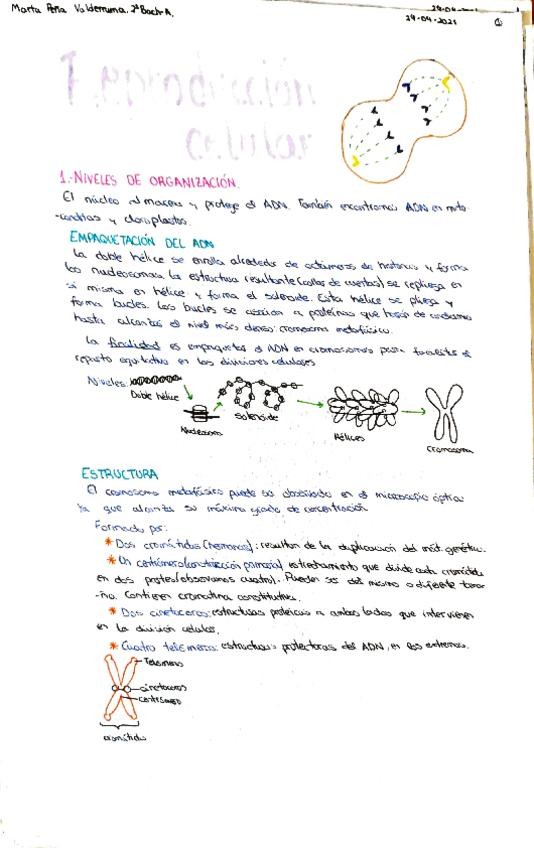 Marta Peña Valderrama. 2ºBach-A.
29-04-2021
1
Reproducción
celular
1.-NIVELES DE ORGANIZACIÓN.
El núcleo almacena y protege el ADN. También encontramos ADN en mito
-condrias y cloroplastos.
EMPAQUETACIÓN DEL ADN
La doble hélice se enrolla alrededor de octámeros de histonas y forma
los nucleosomas. La estructura resultante (collar de cuentas) se repliega en
sí misma en hélice y forma el solenoide. Esta hélice se pliega y
forma bucles. Los bucles se asocian a proteínas que hacen de andamio
hasta alcanzar el nivel más denso: cromosoma metafásico.
La finalidad es empaquetar el ADN en cromosomas para facilitar el
reparto equitativo en las divisiones celulares
Niveles:
Doble hélice
Nucleosoma
Solenoide
Hélices
Cromosoma
ESTRUCTURA
El cromosoma metafásico puede ser observado en el microscopio óptico
ya que alcanza su máximo grado de concentración
Formado por:
* Dos cromátidas (hermanas): resultan de la duplicación del mat. genético.
* Un centrómero (constricción primaria) estrechamiento que divide cada cromátida
en dos partes (observamos cuatro). Pueden ser del mismo o diferente tama
-ño. Contienen cromatina constitutiva.
* Dos cinetocoros: estructuras proteicas a ambos lados que intervienen
en la división celular.
* Cuatro telómeros: estructuras protectoras del ADN, en los extremos.
Telómero
cinetocoros
centrómero
cromátidas